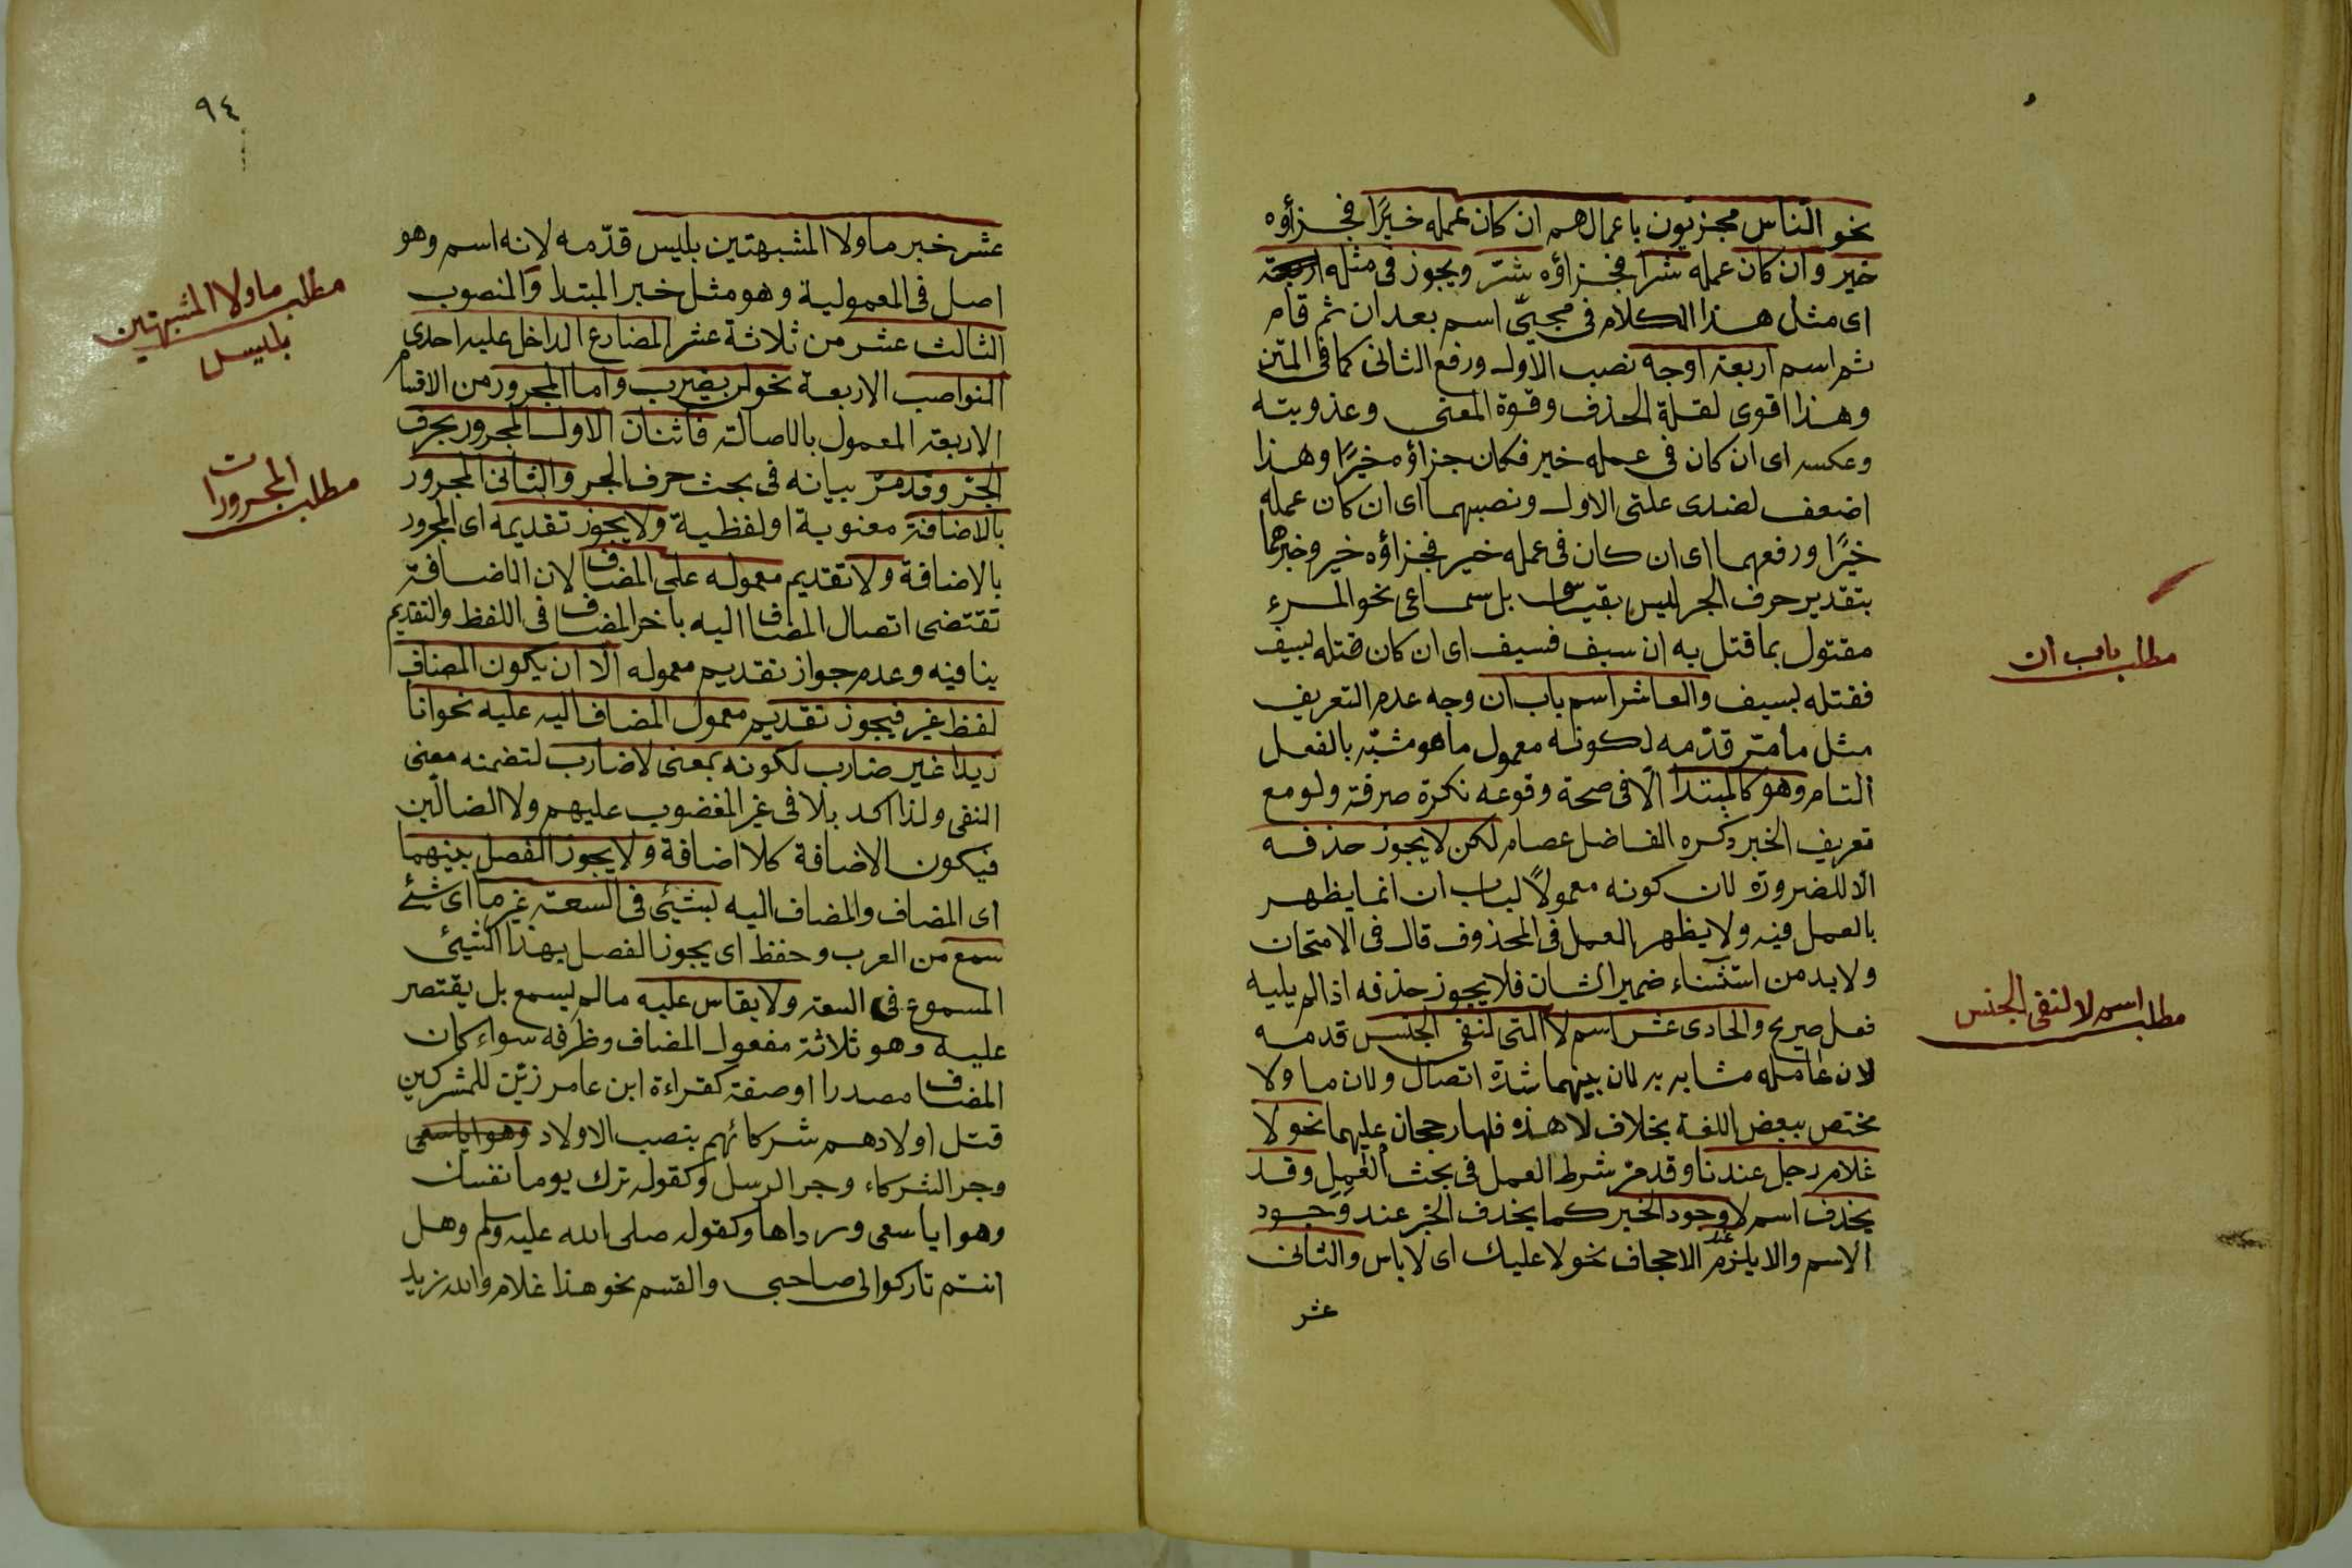 نحو الناس مجزيون باعمالهم ان كان عمله خيرًا فجزاؤه
خير وان كان عمله شرا فجزاؤه شتر ويجوز فى مثله اربعة
اى مثل هذا الكلام فى مجيئ اسم بعد ان ثم قام
ثم اسم اربعة اوجه نصب الاول ورفع الثانى كما فى المتن
وهذا اقوى لقلة الحذف وقوة المعنى وعذوبته
وعكسه اى ان كان فى عمله خير فكان جزاؤه خيرًا وهذا
اضعف لضدى علتى الاول ونصبهما اى ان كان عمله
خيرًا ورفعهما اى ان كان فى عمله خير فجزاؤه خير وخبرهما
بتقدير حرف الجر ليس بقياس بل سماعى نحو المرء
مقتول بما قتل به ان سيف فسيف اى ان كان قتله بسيف
فقتله بسيف والعاشر اسم باب ان وجه عدم التعريف
مثل ما متر قدّمه لكونه معمول ما هو مشبّه بالفعل
التام وهو كالمبتدا الّا فى صحة وقوعه نكرة صرفة ولو مع
تعريف الخبر ذكره الفاضل عصام لكن لا يجوز حذفه
الّا للضرورة لان كونه معمولًا لباب ان انما يظهر
بالعمل فيه ولا يظهر العمل فى المحذوف قال فى الامتحان
ولا بد من استثناء ضمير الشان فلا يجوز حذفه اذا لم يليه
فعل صريح والحادى عشر اسم لا التى لنفى الجنس قدمه
لان عامله مشابه به لان بينهما شدة اتصال ولان ما ولا
مختص ببعض اللغة بخلاف لا هذه فلها رجحان عليهما نحو لا
غلام رجل عندنا وقد مرّ شرط العمل فى بحث العمل وقد
يحذف اسم لا وجود الخبر كما يحذف الخبر عند وجود
عند
الاسم والا يلزم الاجحاف نحو لا عليك اى لا باس والثانى
عشر
مطلب باب ان
مطلب اسم لا لنفى الجنس
٩٤
عشر خبر ما ولا المشبهتين بليس قدّمه لانه اسم وهو
اصل فى المعمولية وهو مثل خبر المبتدا والمنصوب
الثالث عشر من ثلاثة عشر المضارع الداخل عليه احدى
النواصب الاربعة نحو لن يضرب واما المجرور من الاقسام
الاربعة المعمول بالاصالة فاثنان الاول المجرور بحرف
الجتر وقد مرّ بيانه فى بحث حرف الجر والثانى المجرور
بالاضافة معنوية او لفظية ولا يجوز تقديمه اى المجرور
بالاضافة ولا تقديم معموله على المضاف لان الاضافة
تقتضى اتصال المضاف اليه باخر المضاف فى اللفظ والتقديم
ينافيه وعدم جواز تقديم معموله الّا ان يكون المضاف
لفظ غير فيجوز تقديم معمول المضاف اليه عليه نحو انا
زيدا غير ضارب لكونه بمعنى لا ضارب لتضمنه معنى
النفى ولذا اكد بلا فى غير المغضوب عليهم ولا الضالّين
فيكون الاضافة كلا اضافة ولا يجوز الفصل بينهما
اى المضاف والمضاف اليه بشيئ فى السعة غير ما اى شئ
سمع من العرب وحفظ اى يجوز الفصل بهذا الشيئ
المسموع فى السعة ولا يقاس عليه ما لم يسمع بل يقتصر
عليه وهو ثلاثة مفعول المضاف وظرفه سواء كان
المضاف مصدرا او صفة كقراءة ابن عامر زيّن للمشركين
قتل اولادهم شركائهم بنصب الاولاد وهوايا سعى
وجر الشركاء وجر الرسل وكقوله ترك يوما نفسك
وهوايا سعى ورداها وكقوله صلى الله عليه وسلم وهل
انتم تاركوا لى صاحبى والقسم نحو هذا غلام والله زيد
مطلب ما ولا المشبهتين
بليس
مطلب المجرورات